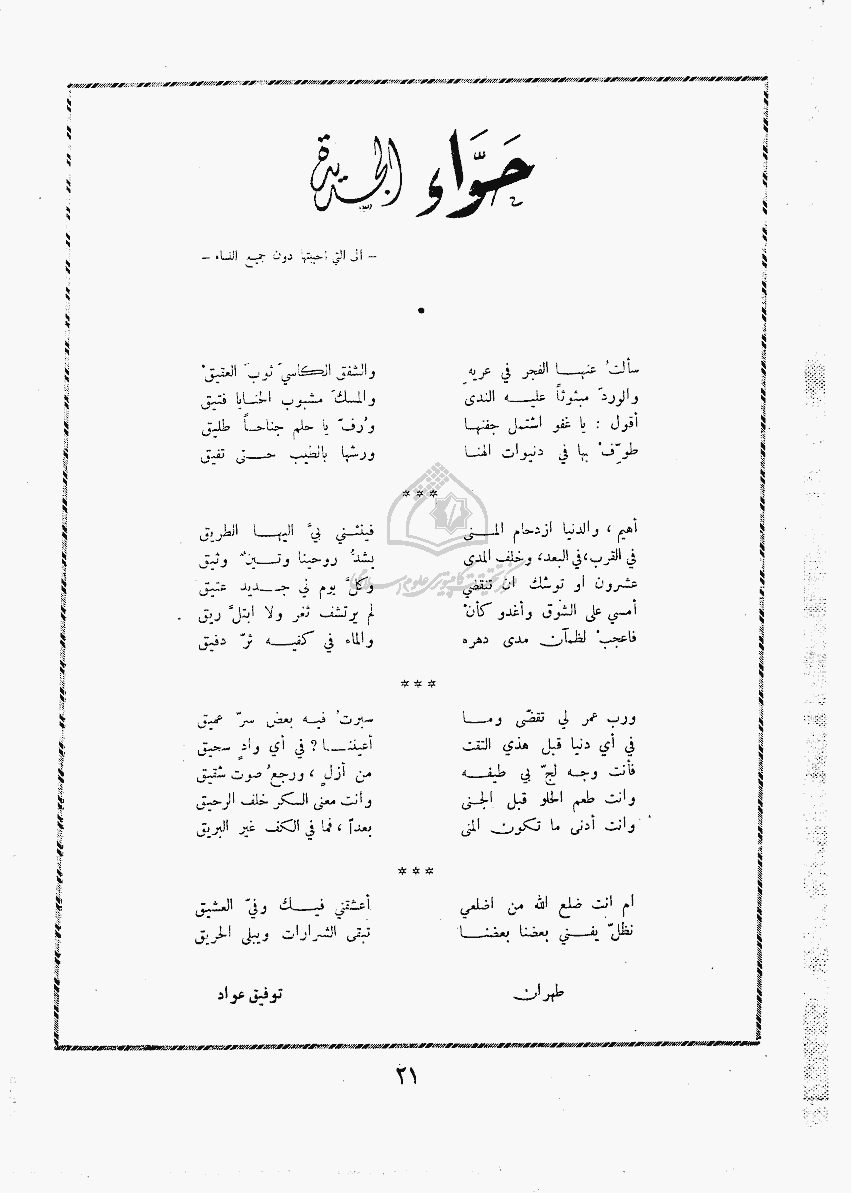 حَوَّاء الجديدة
– الى التي احببتها دون جميع النساء –
سألتُ عنها الفجر في عريهِ والشفق الكاسيَ ثوبَ العقيقْ
والوردَ مبثوثاً عليه الندى والمسكَ مشبوب الحنايا فتيق
أقول : يا غفو اشتمل جفنها ورُفّ يا حلم جناحاً طليق
طوّفْ بها في دنيوات الهنا ورشها بالطيب حتى تفيق
***
أهيم ، والدنيا ازدحام المنى فينثني بيَّ اليها الطريق
في القرب، في البعد، وخلف المدى يشدُّ روحينا وتين وثيق
عشرون أو توشك ان تنقضي وكلَّ يوم في جديد عتيق
أمسي على الشوق وأغدو كأنْ لم يرتشف ثغر ولا ابتلَّ ريق
فاعجبْ لظمآن مدى دهره والماء في كفيه ثرّ دفيق
***
ورب عمر لي تقضّى وما سبرتُ فيه بعض سرّ عميق
في أي دنيا قبل هذي التقت أعيننا ؟ في أي وادٍ سحيق
فأنت وجه لجّ بي طيفه من أزلٍ ، ورجعُ صوت شقيق
وانت طعم الحلو قبل الجنى وانت معنى السكر خلف الرحيق
وانت أدنى ما تكون المنى بعداً ، فما في الكف غير البريق
***
أم انت ضلع الله من اضلعي أعشقني فيك وفيّ العشيق
نظلّ يفني بعضنا بعضنا تبقى الشرارات ويبلى الحريق
طهران توفيق عواد
٢١
مركز تحقيقات كامپيوترى علوم اسلامى